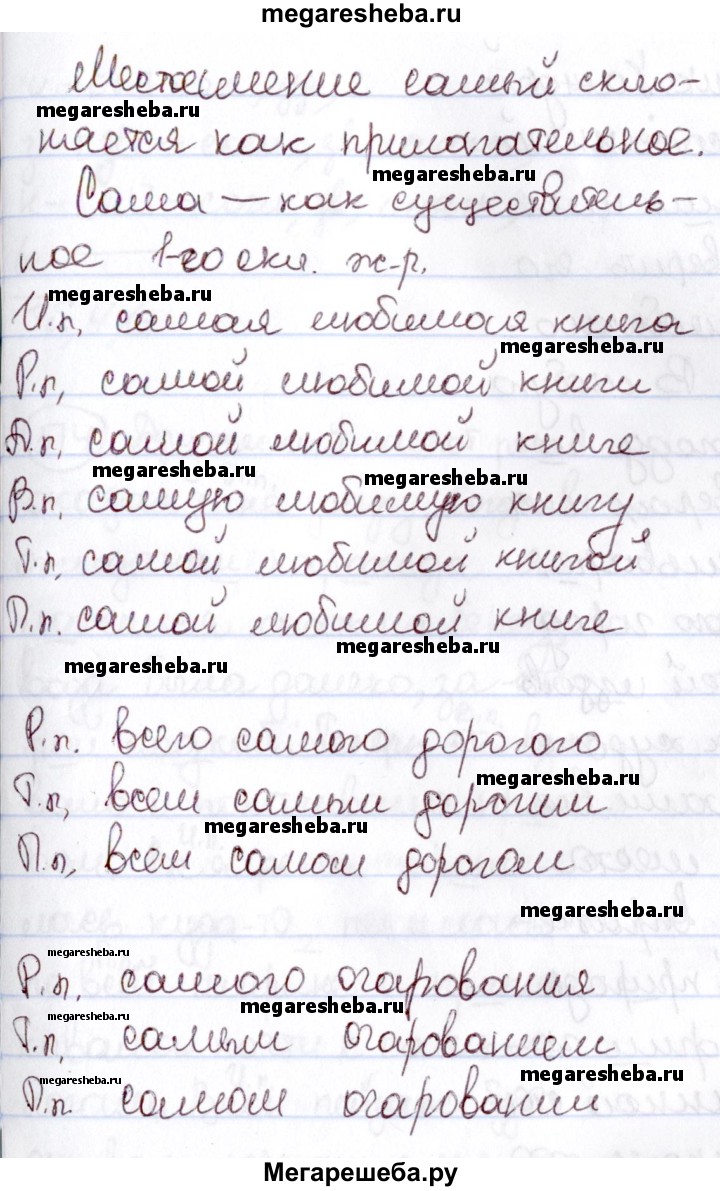 megaresheba.ru
Местоимение самый скло-
megaresheba.ru
няется как прилагательное.
megaresheba.ru
Сама — как существитель-
ное 1-го скл. ж.р.
megaresheba.ru
И.п, самая любимая книга
megaresheba.ru
Р.п, самой любимой книги
Д.п, самой любимой книге
megaresheba.ru megaresheba.ru
В.п, самую любимую книгу
Т.п, самой любимой книгой
П.п. самой любимой книге
megaresheba.ru megaresheba.ru
Р.п. всего самого дорогого
megaresheba.ru
Т.п, всем самым дорогим
megaresheba.ru
П.п, всем самом дорогом
megaresheba.ru
megaresheba.ru
Р.п, самого очарования
megaresheba.ru
megaresheba.ru
Т.п, самым очарованием
megaresheba.ru megaresheba.ru
П.п. самом очаровании
Мегарешеба.ру